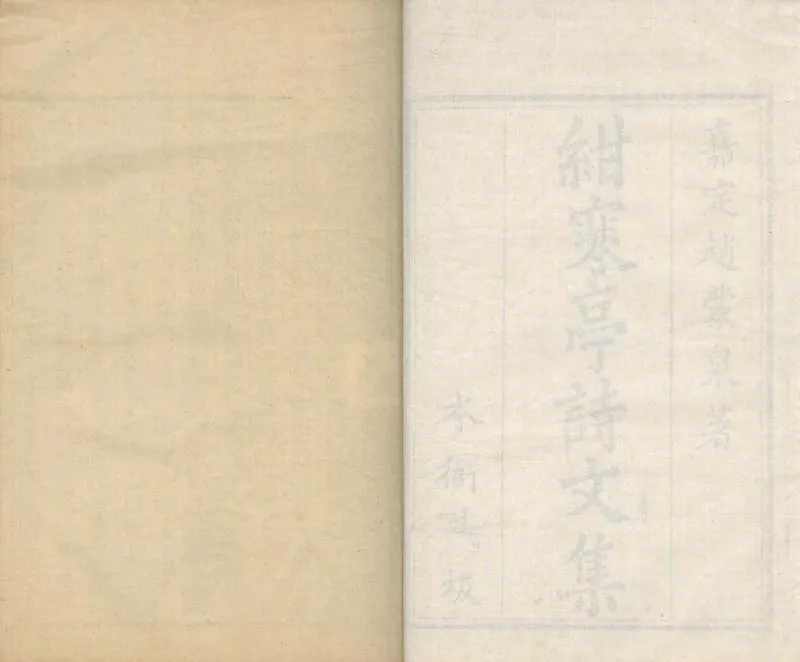 嘉定趙蒙泉著
紺寒亭詩文集
本衙藏板